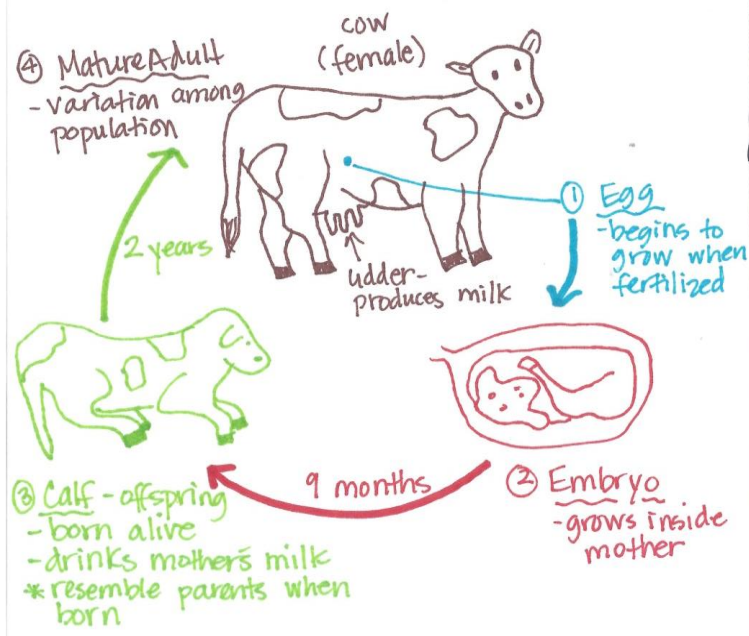 cow
(female)
④ Mature Adult
- variation among
population
① Egg
- begins to
grow when
fertilized
udder-
produces milk
2 years
② Embryo
- grows inside
mother
9 months
③ Calf - offspring
- born alive
- drinks mother's milk
* resemble parents when
born